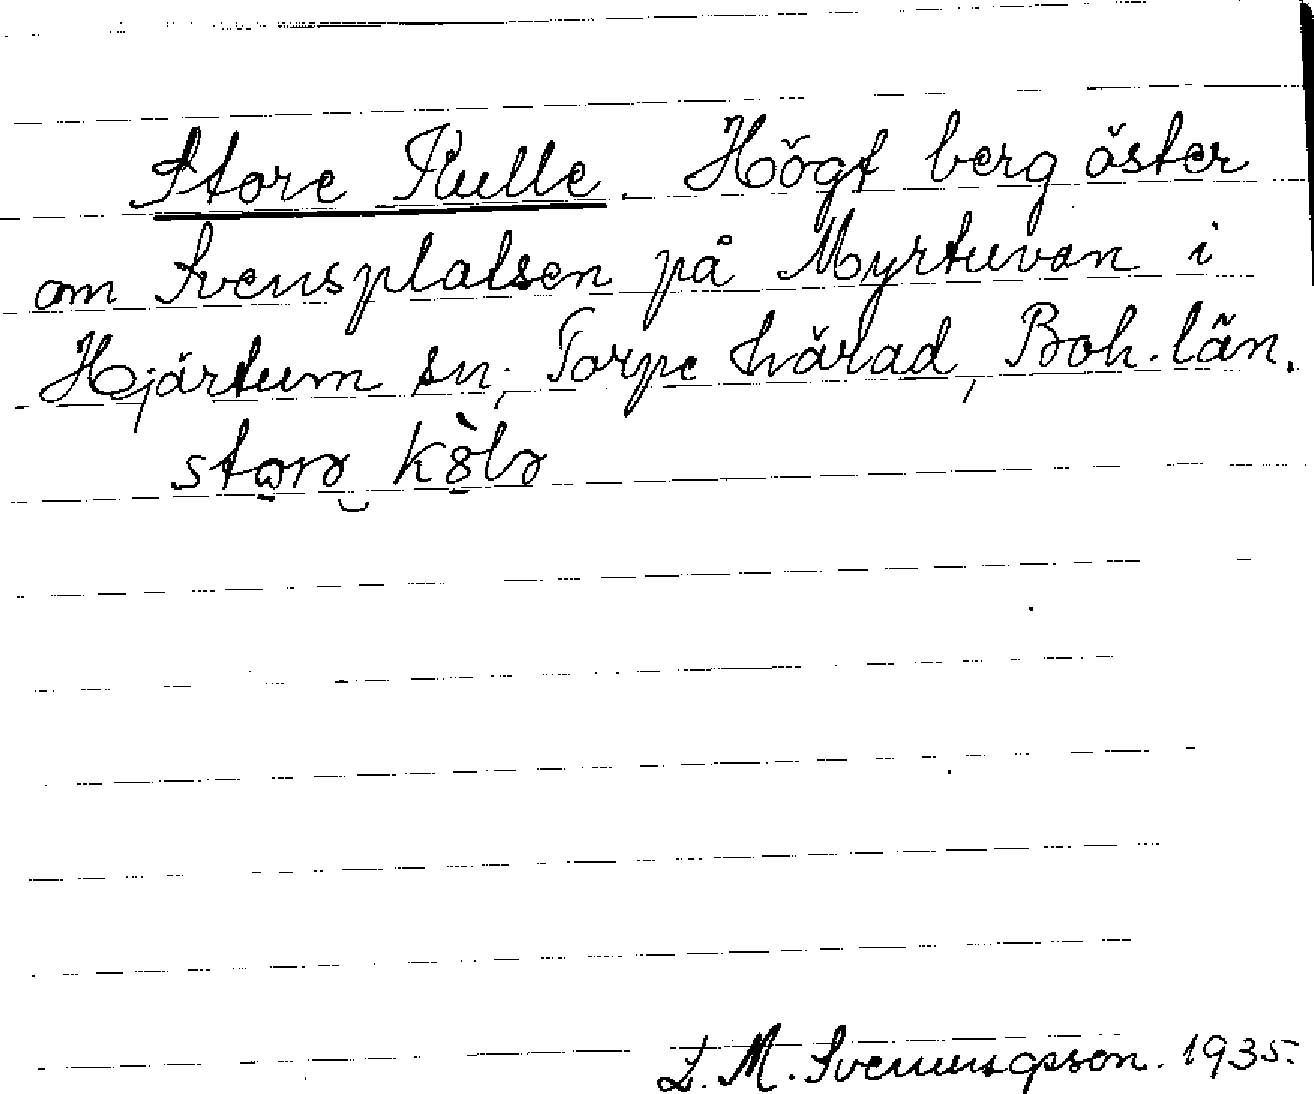 Store Kulle. Högt berg öster
om Svensplatsen på Myrtuvan i
Hjärtum sn, Torpe härad, Boh. län.
L. M. Svenungsson. 1935.